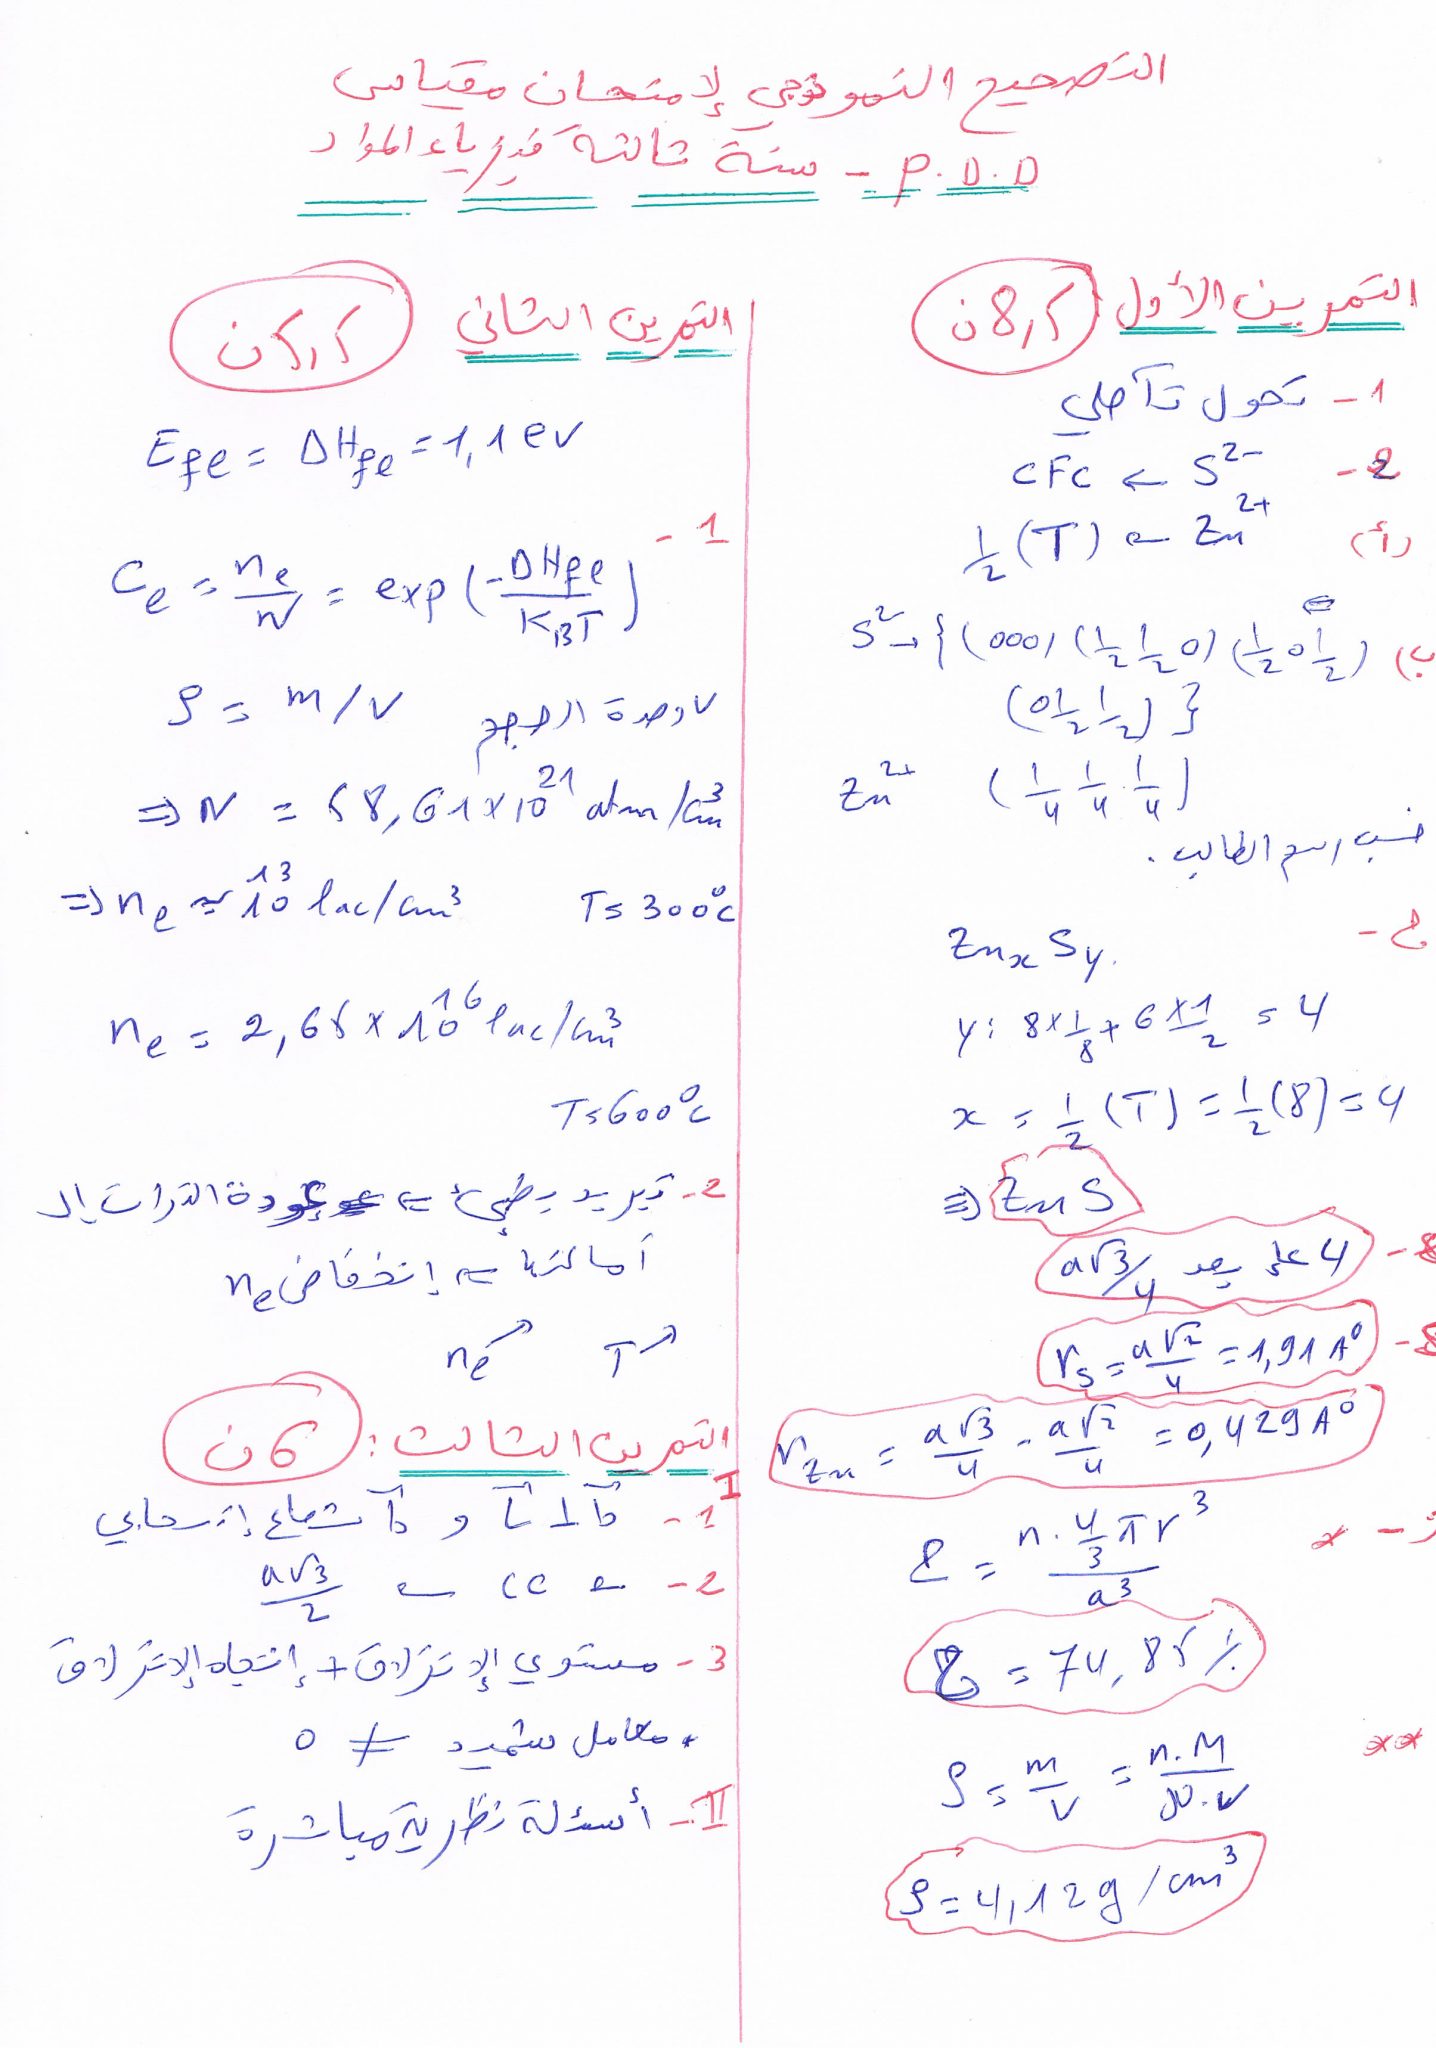 التصحيح النموذجي لإمتحان مقياس
P.D.D - سنة ثالثة فيزياء المواد
التمرين الأول 8,5ن
1- تحول تآصلي
2- S²⁻ → CFC
أ) Zn²⁺ → ½(T)
ب) S²⁻ → {(000) (½ ½ 0) (½ 0 ½)
(0 ½ ½)}
Zn²⁺ (¼ ¼ ¼)
حسب رسم الطالب.
ج- ZnxSy.
y: 8×1/8 + 6×1/2 = 4
x = ½(T) = ½(8) = 4
⇒ ZnS
4 على بعد a√3/4
rS = a√2/4 = 1,91 A°
rZn = a√3/4 - a√2/4 = 0,429 A°
ز- * ζ = n.4/3πr³ / a³
ζ = 74,85 %
** ρ = m/V = n.M/N.V
ρ = 4,12 g/cm³
التمرين الثاني 5,5ن
Efe = ΔHfe = 1,1 eV
1- Ce = ne/N = exp(-ΔHfe/KBT)
ρ = m/V V وحدة الحجم
⇒ N = 58,61×10²¹ atm/cm³
⇒ ne ≈ 10¹³ lac/cm³ T=300°C
ne = 2,65×10¹⁶ lac/cm³
T=600°C
2- تبريد بطيئ ⇐ عودة الذرات إلى
أماكنها ⇐ إنخفاض ne
T↗ ne↗
التمرين الثالث: 6ن
I
1- و شعاع إنزحابي
2- CC → a√3/2
3- مستوي الإنزلاق + إتجاه الإنزلاق
+ معامل شميد ≠ 0
II- أسئلة نظرية مباشرة